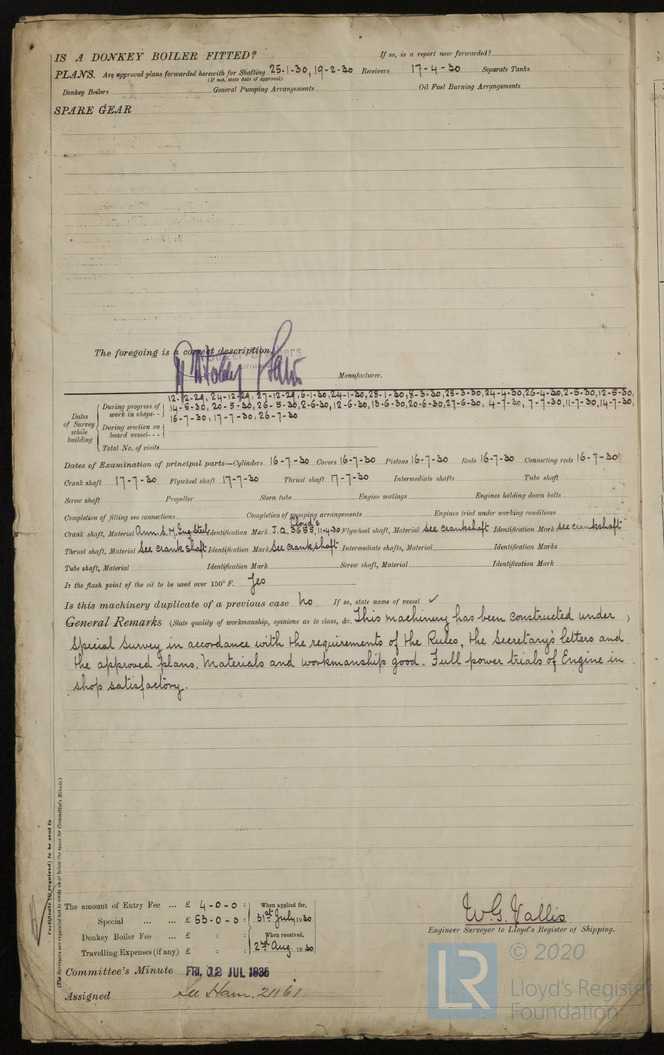 IS A DONKEY BOILER FITTED? If so, is a report now forwarded?
PLANS. Are approved plans forwarded herewith for Shafting 25-1-30, 19-2-30 Receivers 17-4-30 Separate Tanks
(If not, state date of approval)
Donkey Boilers General Pumping Arrangements Oil Fuel Burning Arrangements
SPARE GEAR
The foregoing is a correct description,
Manufacturer.
Dates of Survey while building
During progress of work in shops-- 12-12-29, 24-12-29, 27-12-29, 6-1-30, 24-1-30, 28-1-30, 8-3-30, 28-3-30, 24-4-30, 26-4-30, 2-5-30, 12-5-30,
14-5-30, 20-5-30, 26-5-30, 2-6-30, 12-6-30, 13-6-30, 20-6-30, 27-6-30, 4-7-30, 7-7-30, 11-7-30, 14-7-30,
16-7-30, 17-7-30, 26-7-30
During erection on board vessel---
Total No. of visits
Dates of Examination of principal parts—Cylinders 16-7-30 Covers 16-7-30 Pistons 16-7-30 Rods 16-7-30 Connecting rods 16-7-30
Crank shaft 17-7-30 Flywheel shaft 17-7-30 Thrust shaft 17-7-30 Intermediate shafts Tube shaft
Screw shaft Propeller Stern tube Engine seatings Engines holding down bolts
Completion of fitting sea connections Completion of pumping arrangements Engines tried under working conditions
Crank shaft, Material S.M. Ing Steel Identification Mark Lloyd's J.A. 3655, 11-4-30 Flywheel shaft, Material See crankshaft Identification Mark See crankshaft
Thrust shaft, Material See crank shaft Identification Mark See crank shaft Intermediate shafts, Material Identification Marks
Tube shaft, Material Identification Mark Screw shaft, Material Identification Mark
Is the flash point of the oil to be used over 150° F. Yes
Is this machinery duplicate of a previous case No If so, state name of vessel ✓
General Remarks (State quality of workmanship, opinions as to class, &c. This machinery has been constructed under
Special Survey in accordance with the requirements of the Rules, the Secretary's letters and
the approved plans. Materials and workmanship good. Full power trials of Engine in
shop satisfactory.
Certificate (if required) to be sent to
(The Surveyors are requested not to write on or below the space for Committee's Minute.)
The amount of Entry Fee ... £ 4-0-0 : When applied for,
Special ... ... £ 53-0-0 : 31st July 1930
Donkey Boiler Fee ... £ : : When received,
Travelling Expenses (if any) £ : : 2nd Aug. 1930
W.G. Vallis
Engineer Surveyor to Lloyd's Register of Shipping.
Committee's Minute FRI. 12 JUL 1935
Assigned See Ham. 21161
© 2020
LR
Lloyd's Register
Foundation